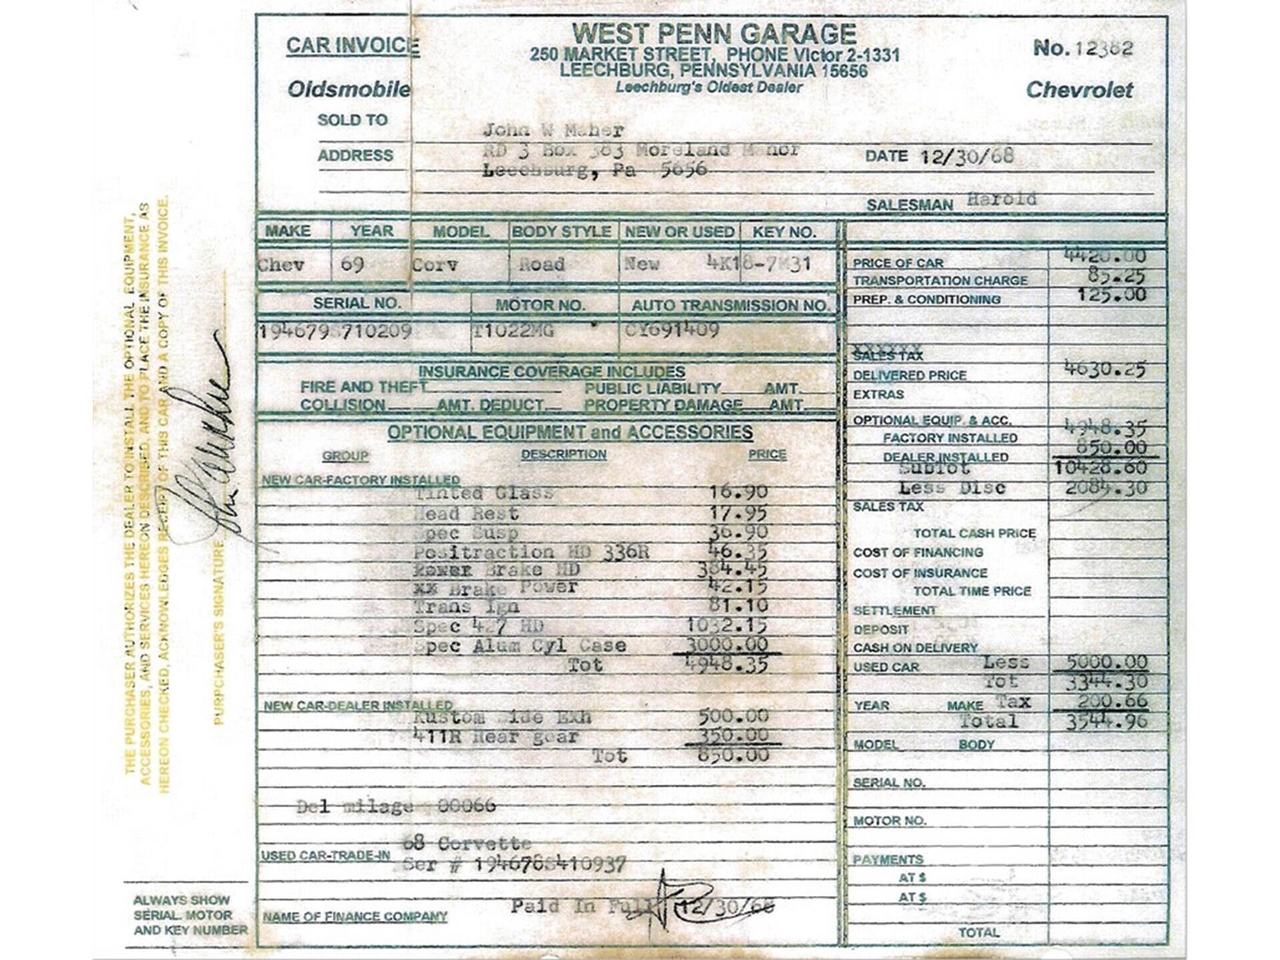 CAR INVOICE
WEST PENN GARAGE
250 MARKET STREET, PHONE Victor 2-1331
LEECHBURG, PENNSYLVANIA 15656
Leechburg's Oldest Dealer
No. 12362
Oldsmobile
Chevrolet
SOLD TO John W Maher
ADDRESS RD 3 Box 383 Moreland Manor
Leechburg, Pa 5656
DATE 12/30/68
SALESMAN Harold
MAKE YEAR MODEL BODY STYLE NEW OR USED KEY NO.
Chev 69 Corv Road New 4K18-7M31
SERIAL NO. MOTOR NO. AUTO TRANSMISSION NO.
194679S710209 T1022MG CY691409
INSURANCE COVERAGE INCLUDES
FIRE AND THEFT PUBLIC LIABILITY AMT.
COLLISION AMT. DEDUCT. PROPERTY DAMAGE AMT.
OPTIONAL EQUIPMENT and ACCESSORIES
GROUP DESCRIPTION PRICE
NEW CAR-FACTORY INSTALLED
Tinted Glass 16.90
Head Rest 17.95
Spec Susp 36.90
Positraction HD 336R 46.35
Power Brake HD 384.45
xx Brake Power 42.15
Trans Ign 81.10
Spec 4.7 HD 1032.15
Spec Alum Cyl Case 3000.00
Tot 4948.35
NEW CAR-DEALER INSTALLED
Kustom Side Exh 500.00
411R Rear gear 350.00
Tot 850.00
Del milage 00066
USED CAR-TRADE-IN 68 Corvette
Ser # 194678S410937
NAME OF FINANCE COMPANY Paid In Full 12/30/68
PRICE OF CAR 4420.00
TRANSPORTATION CHARGE 85.25
PREP. & CONDITIONING 125.00
xxxxxx
SALES TAX
DELIVERED PRICE 4630.25
EXTRAS
OPTIONAL EQUIP. & ACC.
FACTORY INSTALLED 4948.35
DEALER INSTALLED 850.00
Subtot 10428.60
Less Disc 2084.30
SALES TAX
TOTAL CASH PRICE
COST OF FINANCING
COST OF INSURANCE
TOTAL TIME PRICE
SETTLEMENT
DEPOSIT
CASH ON DELIVERY
USED CAR Less 5000.00
Tot 3344.30
YEAR MAKE Tax 200.66
Total 3544.96
MODEL BODY
SERIAL NO.
MOTOR NO.
PAYMENTS
AT $
AT $
TOTAL
THE PURCHASER AUTHORIZES THE DEALER TO INSTALL THE OPTIONAL EQUIPMENT,
ACCESSORIES, AND SERVICES HEREON DESCRIBED, AND TO PLACE THE INSURANCE AS
HEREON CHECKED, ACKNOWLEDGES RECEIPT OF THIS CAR AND A COPY OF THIS INVOICE.
PURPCHASER'S SIGNATURE
ALWAYS SHOW
SERIAL MOTOR
AND KEY NUMBER